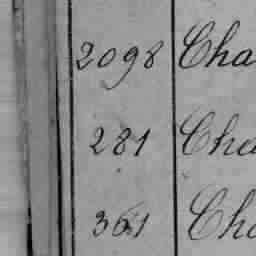 2098 Cha
281 Che
361 Cho